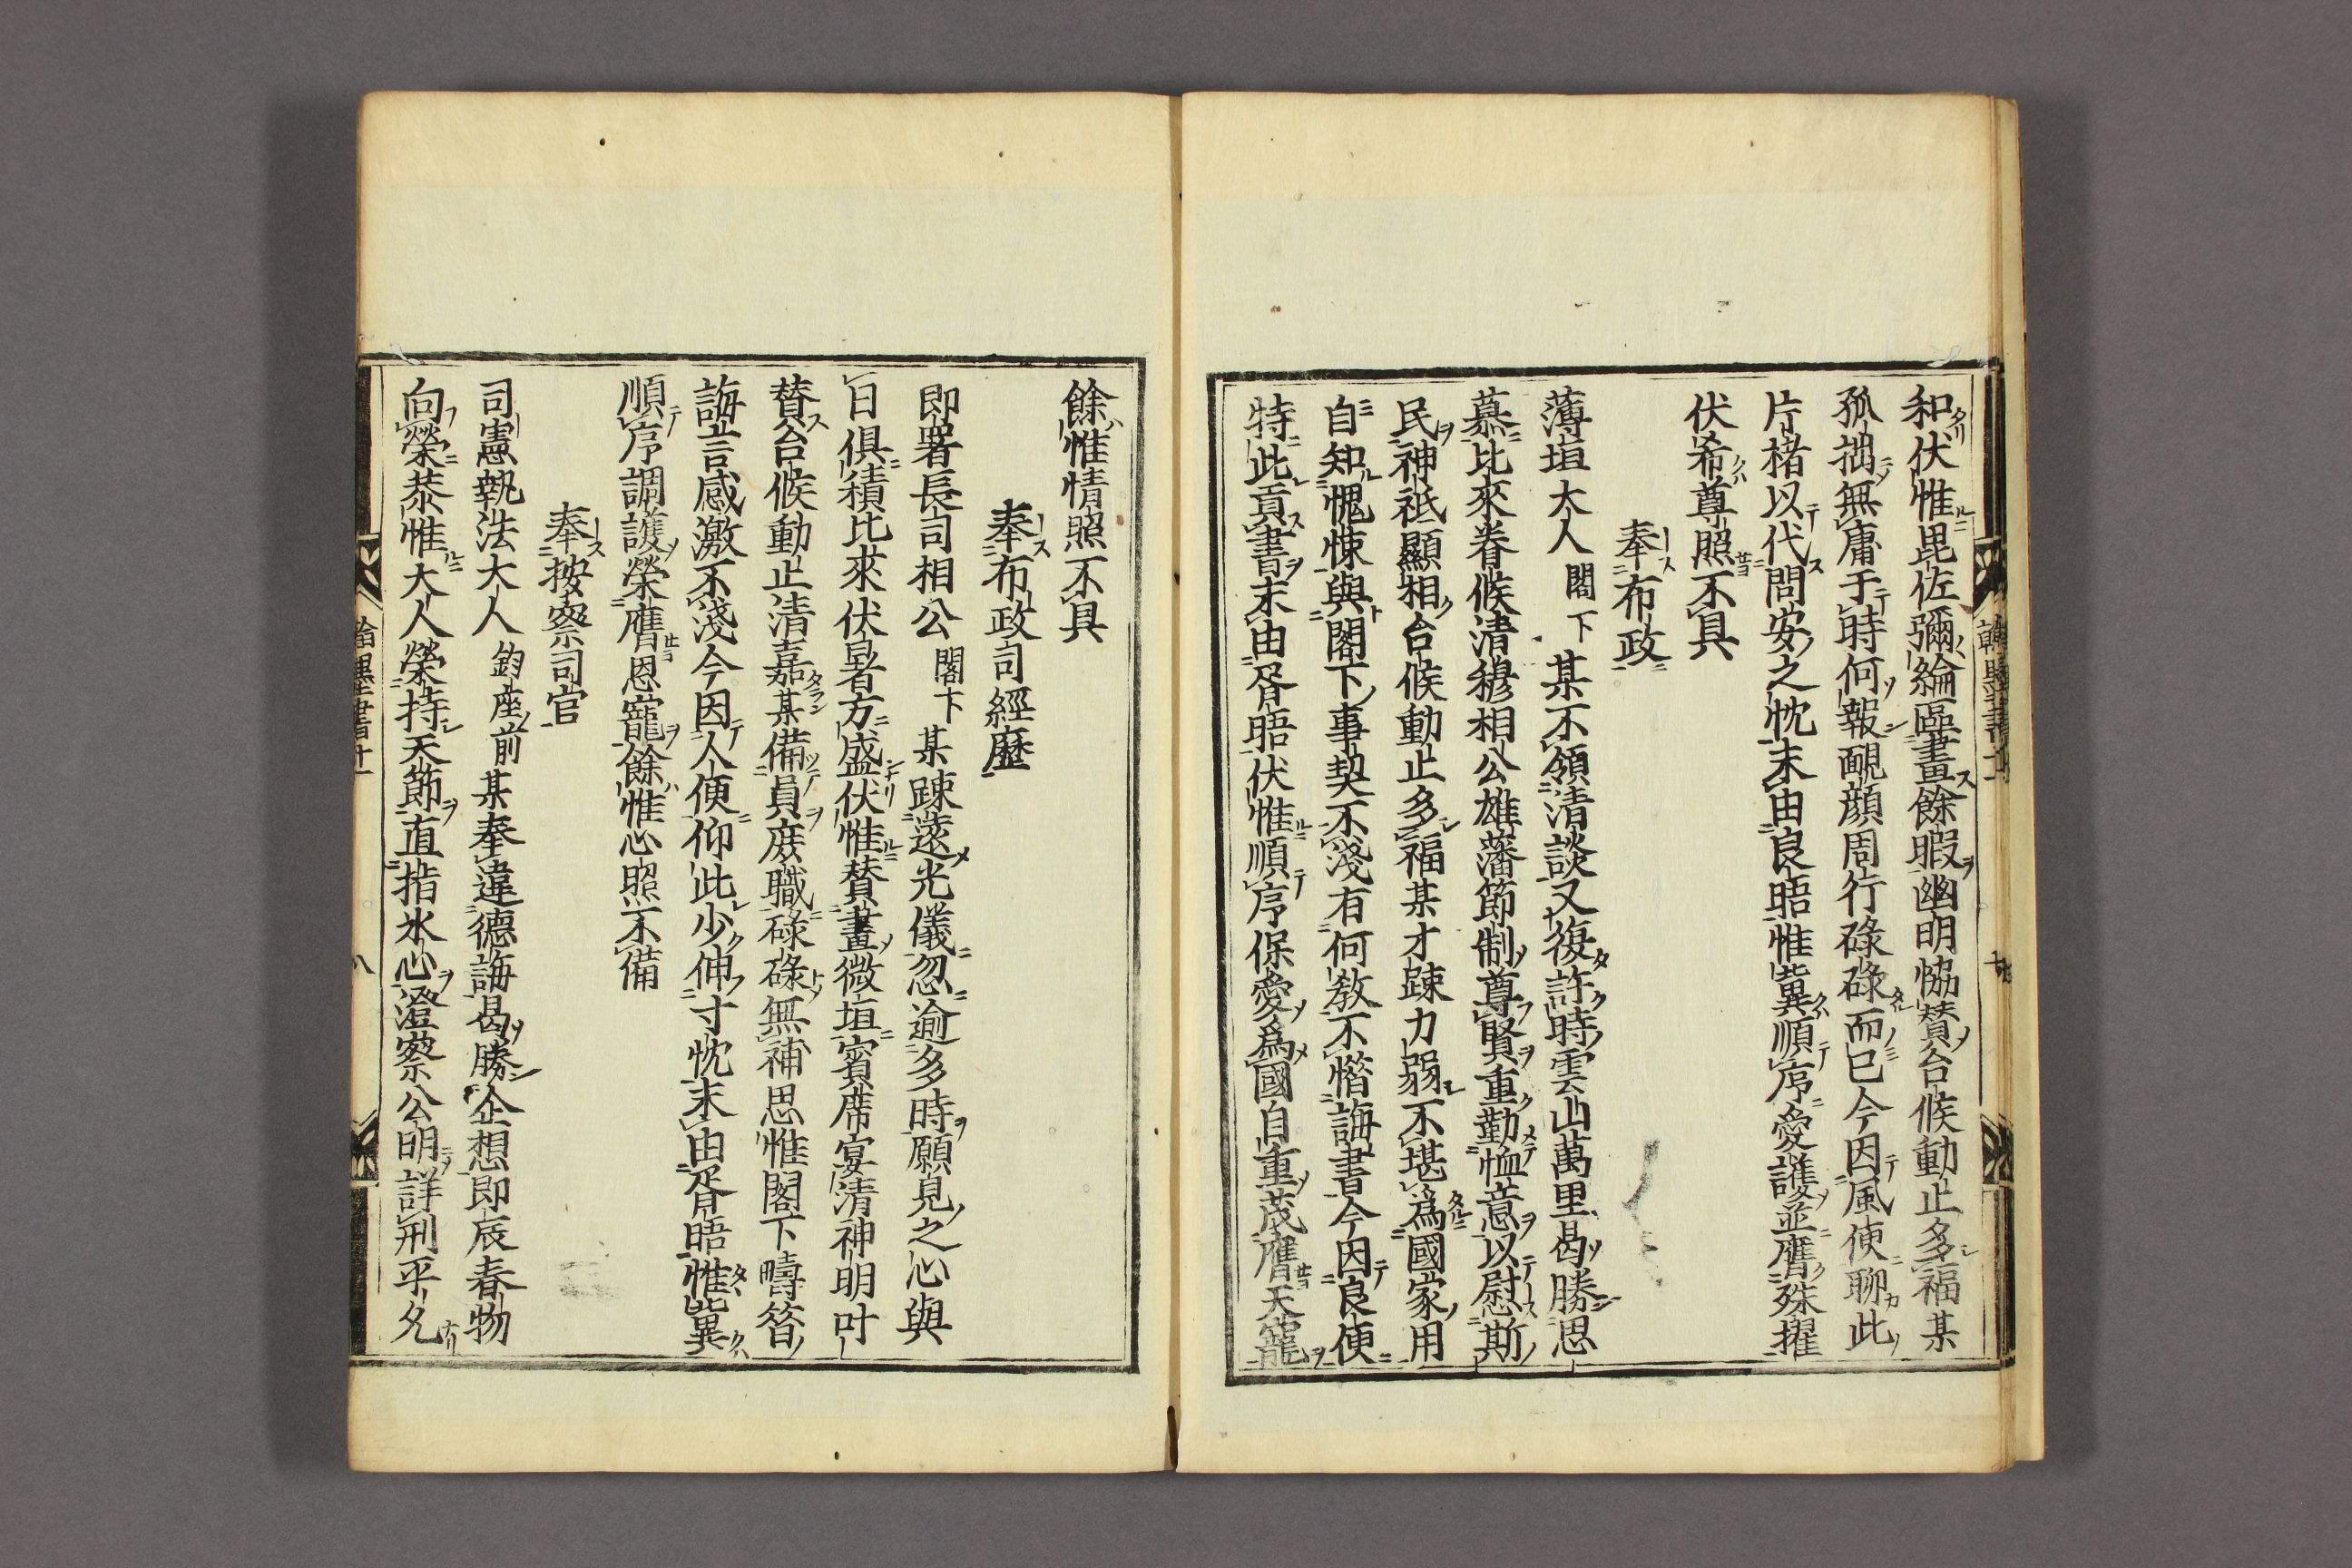 和伏惟毘佐彌綸區畫餘暇幽明恊賛台候動止多福某
孤拙無庸于時何報靦顔周行碌碌而已今因風使聊此
片楮以代問安之忱末由良晤惟冀順序愛護並膺殊擢
伏希尊照不具
奉布政
薄垣大人閣下某不領清談又復許時雲山萬里曷勝思
慕比來眷候清穆相公雄藩節制尊賢重勤恤意以慰斯
民神祗顯相台候動止多福某才踈力弱不堪爲國家用
自知愧悚與閣下事契不淺有何教不惜誨書今因良便
特此貢書末由胥晤伏惟順序保愛爲國自重茂膺天寵
餘惟情照不具
奉布政司經歷
即署長司相公閣下某踈遠光儀忽逾多時願見之心與
日俱積比來伏暑方盛伏惟賛畫微垣賓席宴清神明叶
賛台候動止清嘉某備員庶職碌碌無補思惟閣下疇咨
誨言感激不淺今因人便仰此少伸寸忱末由胥晤惟冀
順序調護榮膺恩寵餘惟心照不備
奉按察司官
司憲執法大人鈞座前某奉違德誨曷勝企想即辰春物
向榮恭惟大人榮持天節直指氷心澄察公明詳刑平允